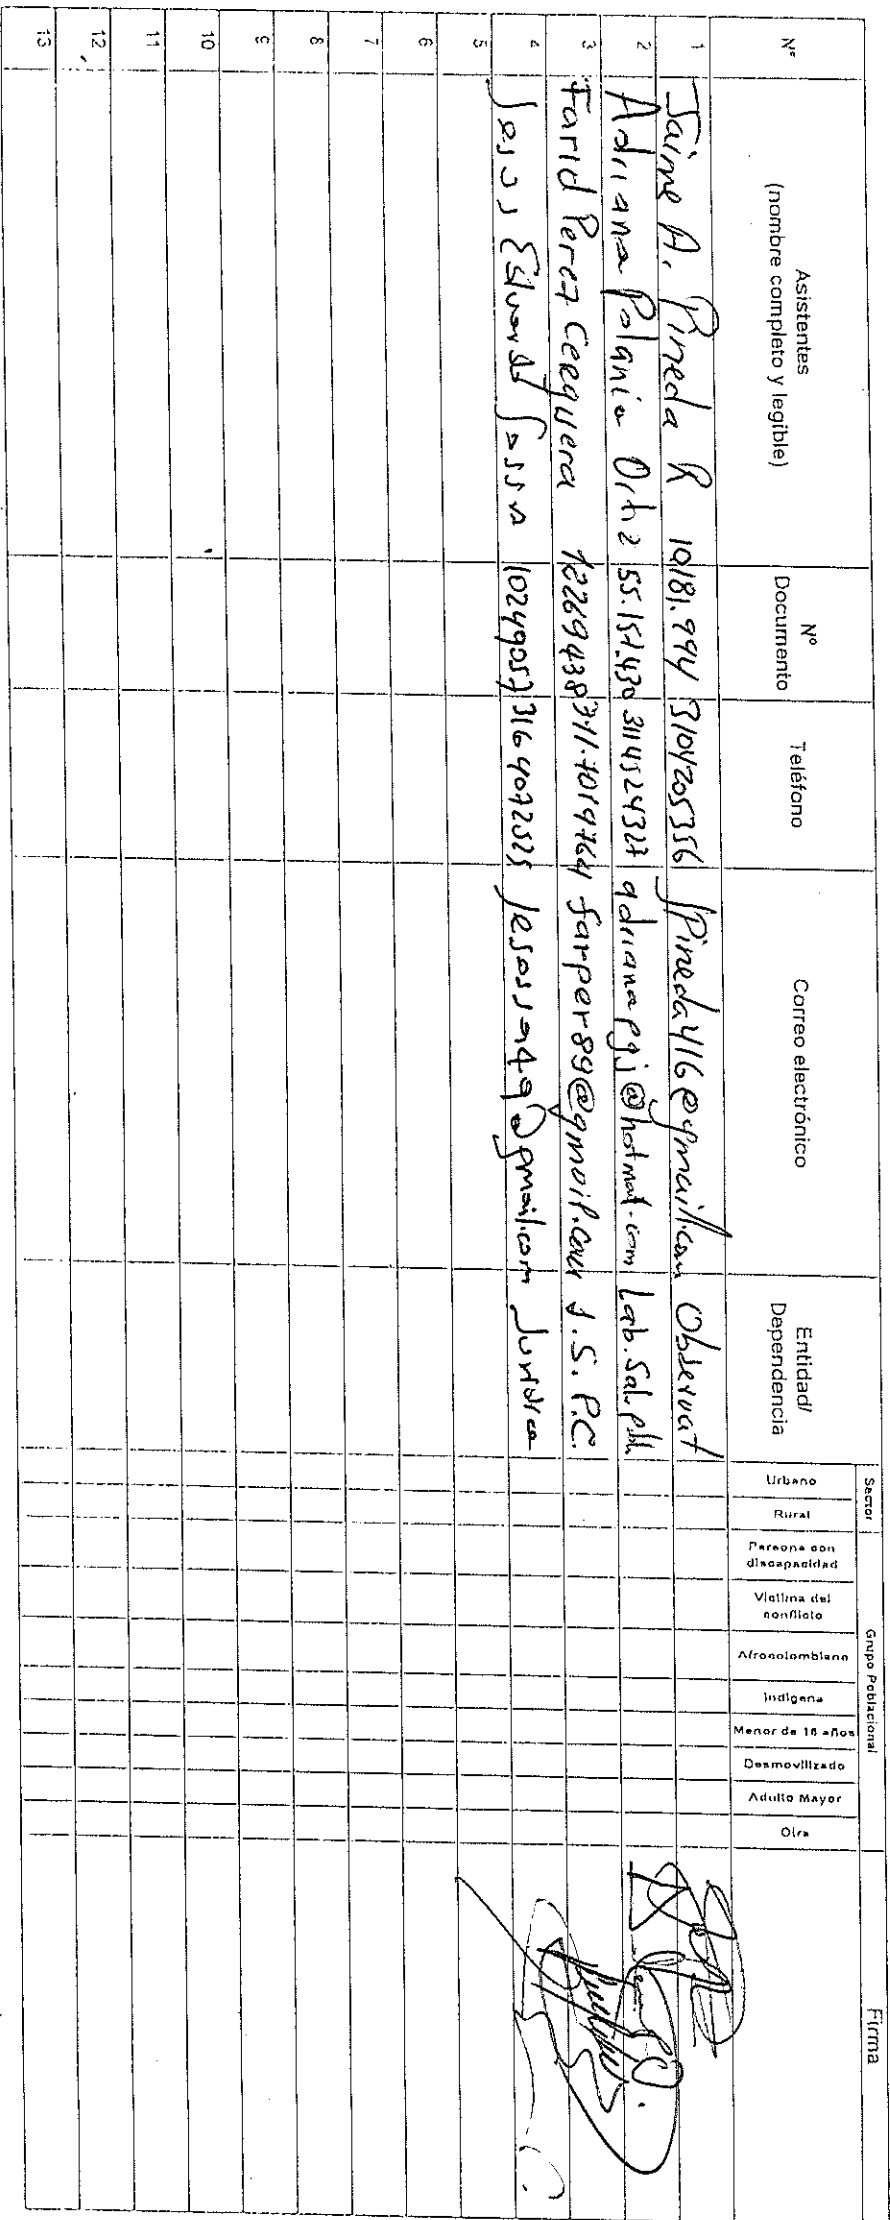 Nº Asistentes (nombre completo y legible) Nº Documento Teléfono Correo electrónico Entidad/ Dependencia Sector Grupo Poblacional Firma
Urbano Rural Persona con discapacidad Víctima del conflicto Afrocolombiano Indígena Menor de 18 años Desmovilizado Adulto Mayor Otra
1 Jaime A. Pineda R 19181.994 3104205356 JPineda416@gmail.com Observat
2 Adriana Polania Ortiz 55.151.430 3114524327 adrianapgj@hotmail.com Lab. Sal. pbl
3 Farid Perez Cerquera 12269438 311.7019764 farper89@gmail.com J.S.P.C.
4 Jesus Eduardo Sossa 10249057 3164072525 jesossa49@gmail.com Juridica
5
6
7
8
9
10
11
12
13